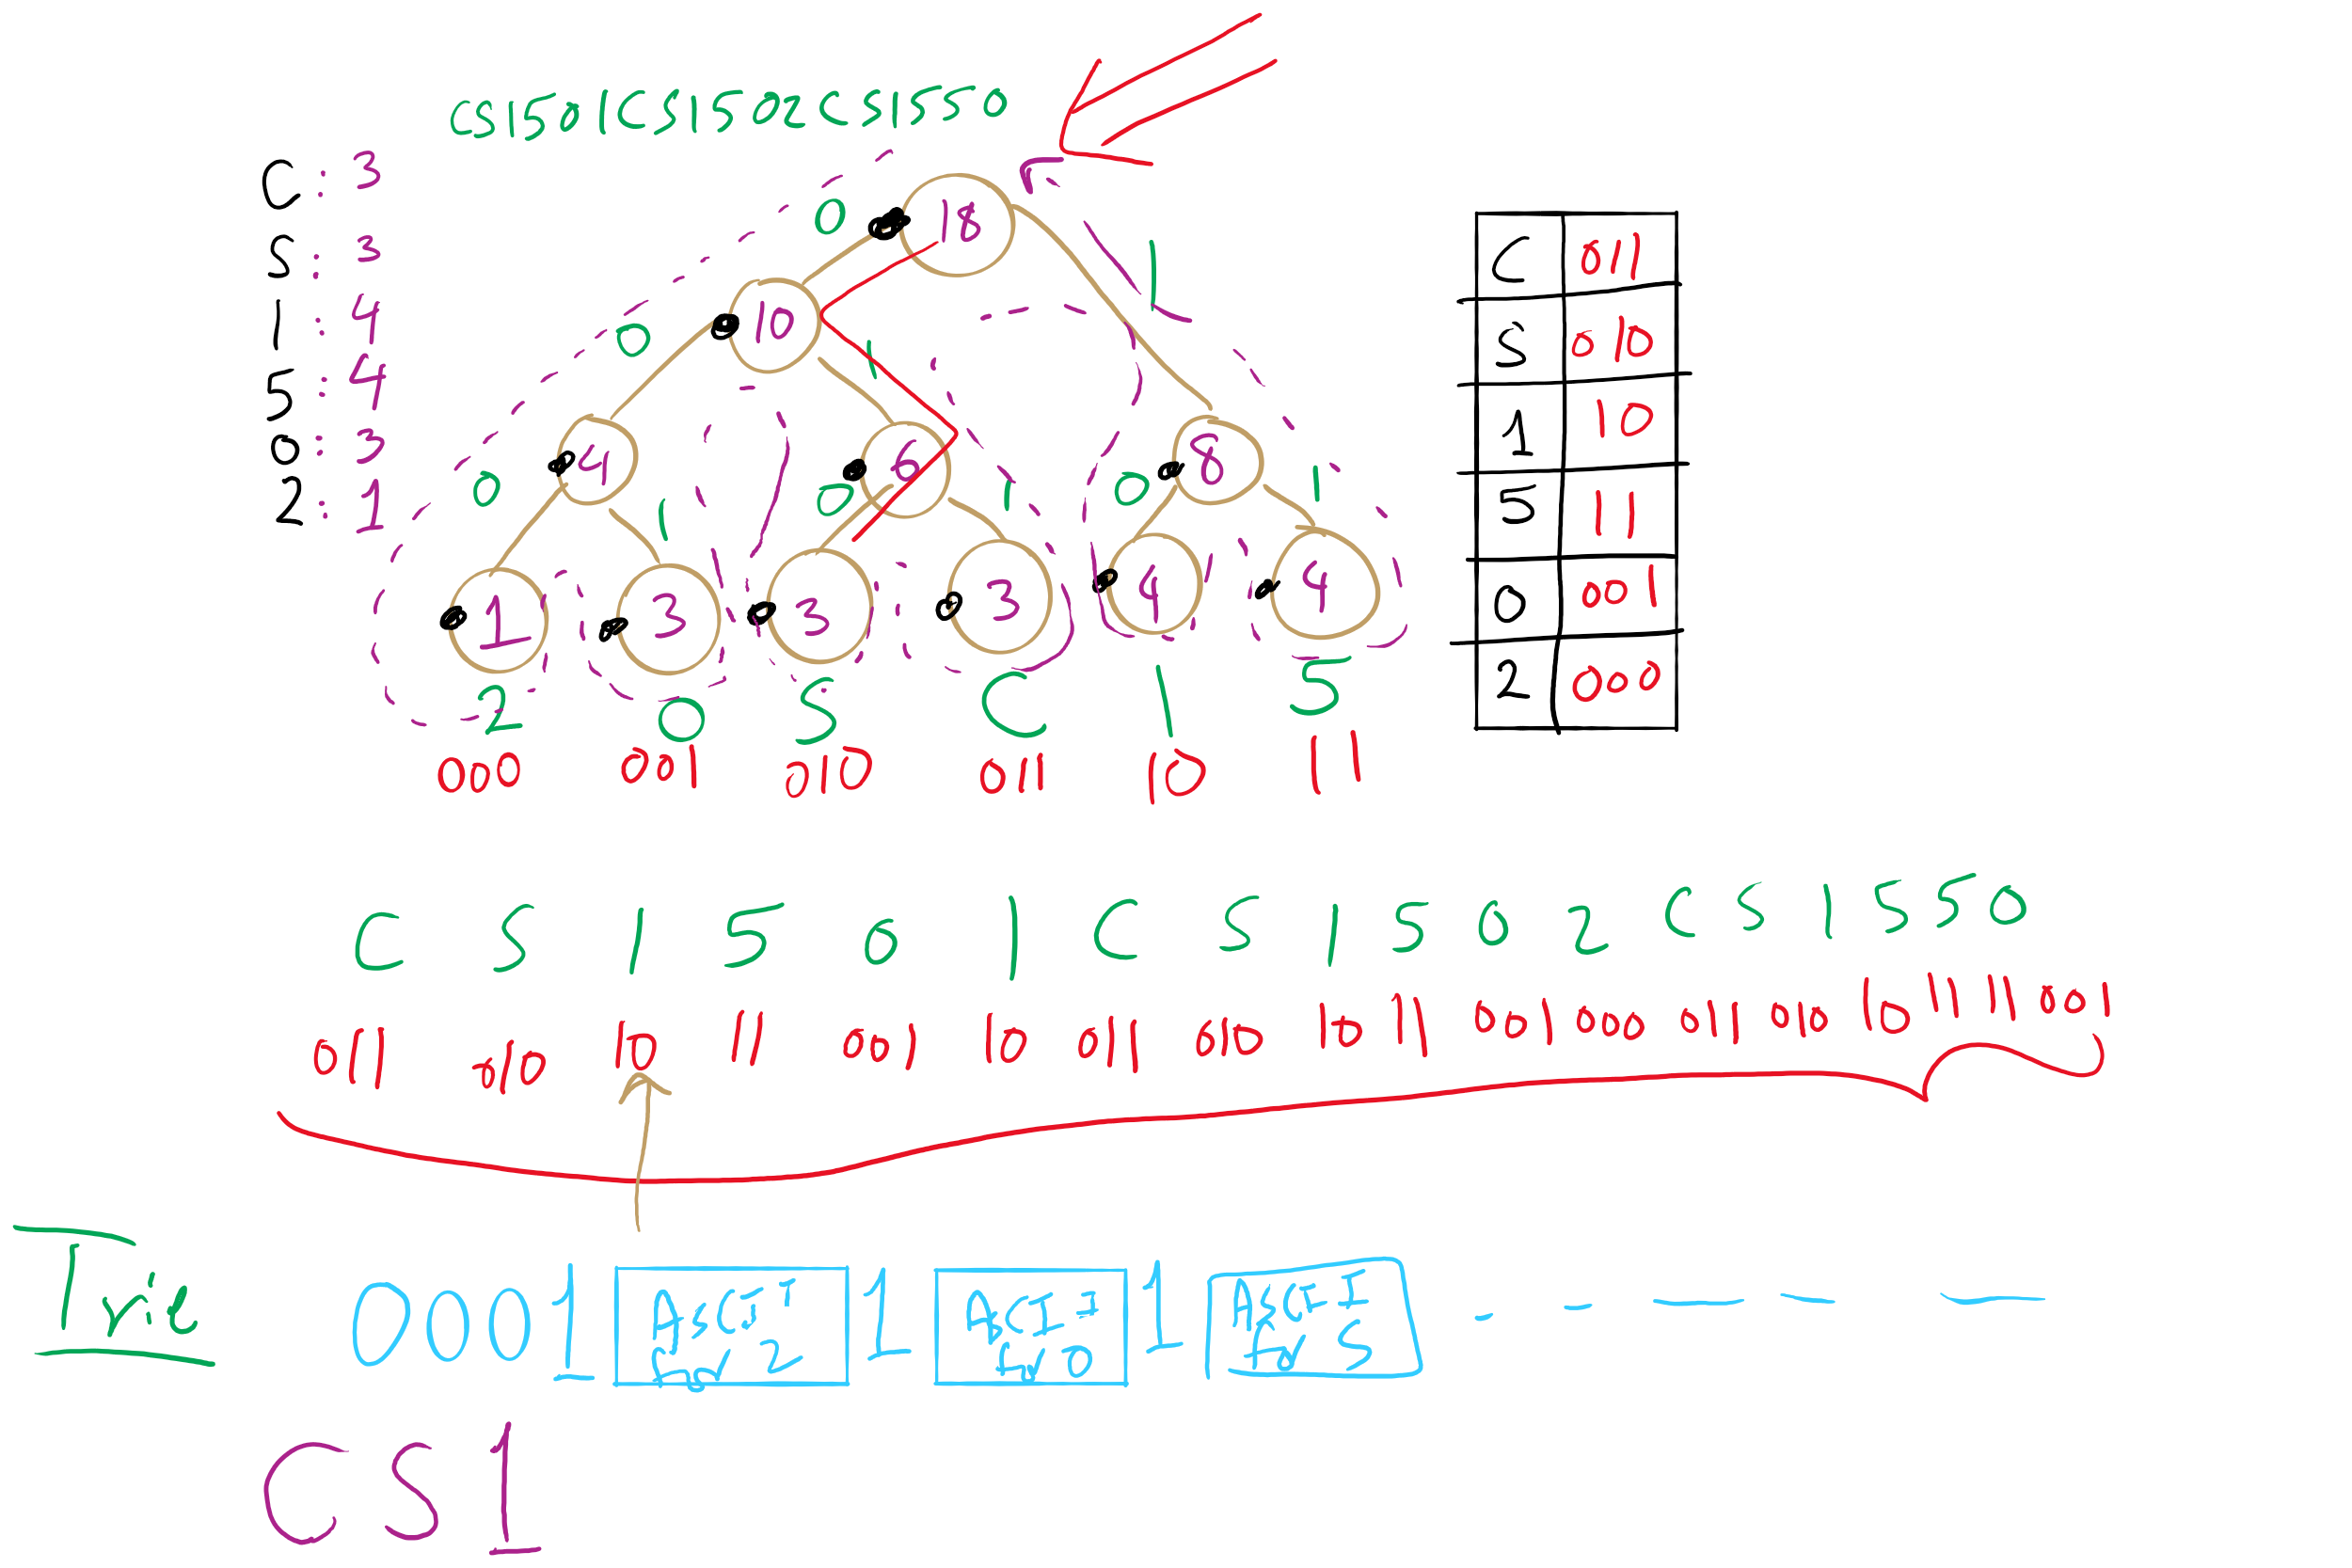 CS1501CS1502CS1550
C: 3
S: 3
1: 4
5: 4
0: 3
2: 1
18
0 1
10
0 1
4 6 8
0 1 0 1 0 1
1 3 3 3 4 4
2 0 S C 1 5
000 001 010 011 10 11
C 011
S 010
1 10
5 11
0 001
2 000
C S 1 5 0 1 C S 1 5 0 2 C S 1 5 5 0
011 010 10 11 001 10 011 010 10 11 001 000 011 010 10 11 11 001
Trie
0001 ASCII 2 1 ASCII 0 1 ASCII S
CS1